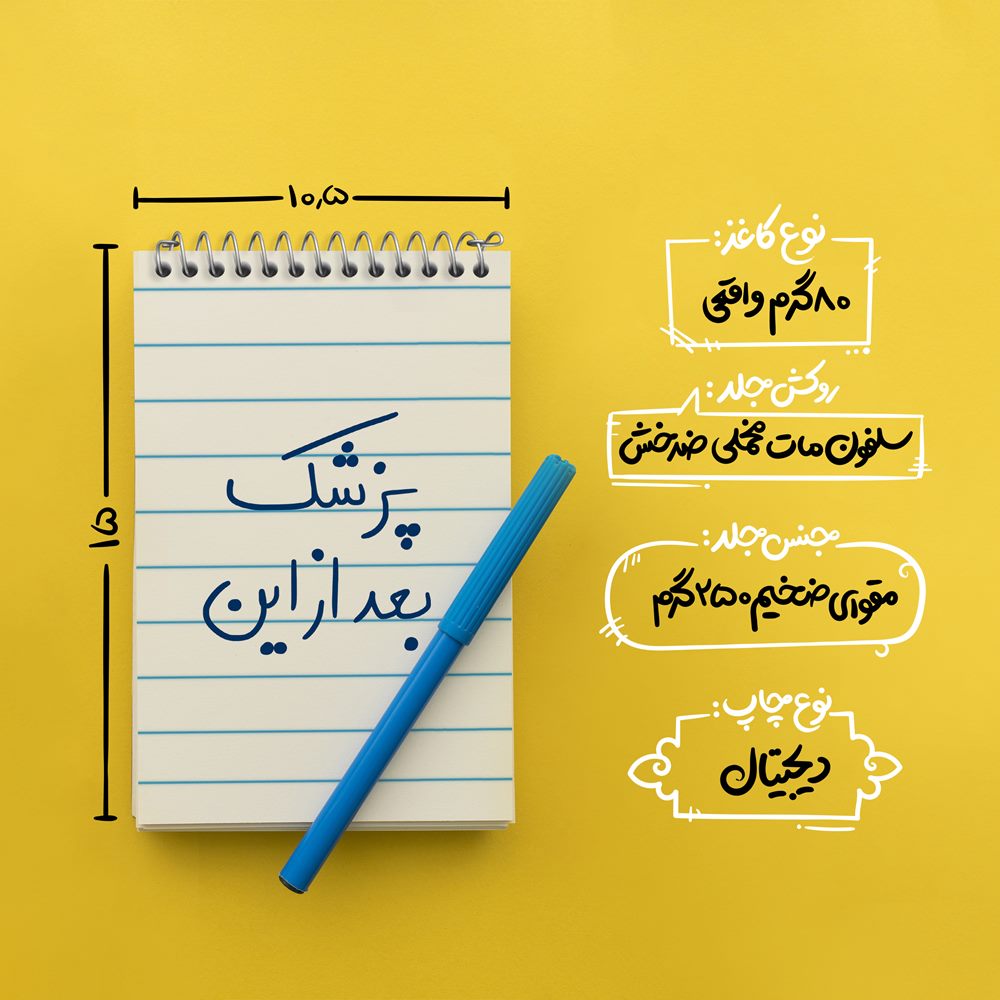 ۱۰٫۵
۱۵
پزشک
بعد از این
نوع کاغذ:
۸۰ گرم واقعی
روکش جلد:
سلفون مات مخملی ضدخش
جنس جلد:
مقوای ضخیم ۲۵۰ گرم
نوع چاپ:
دیجیتال